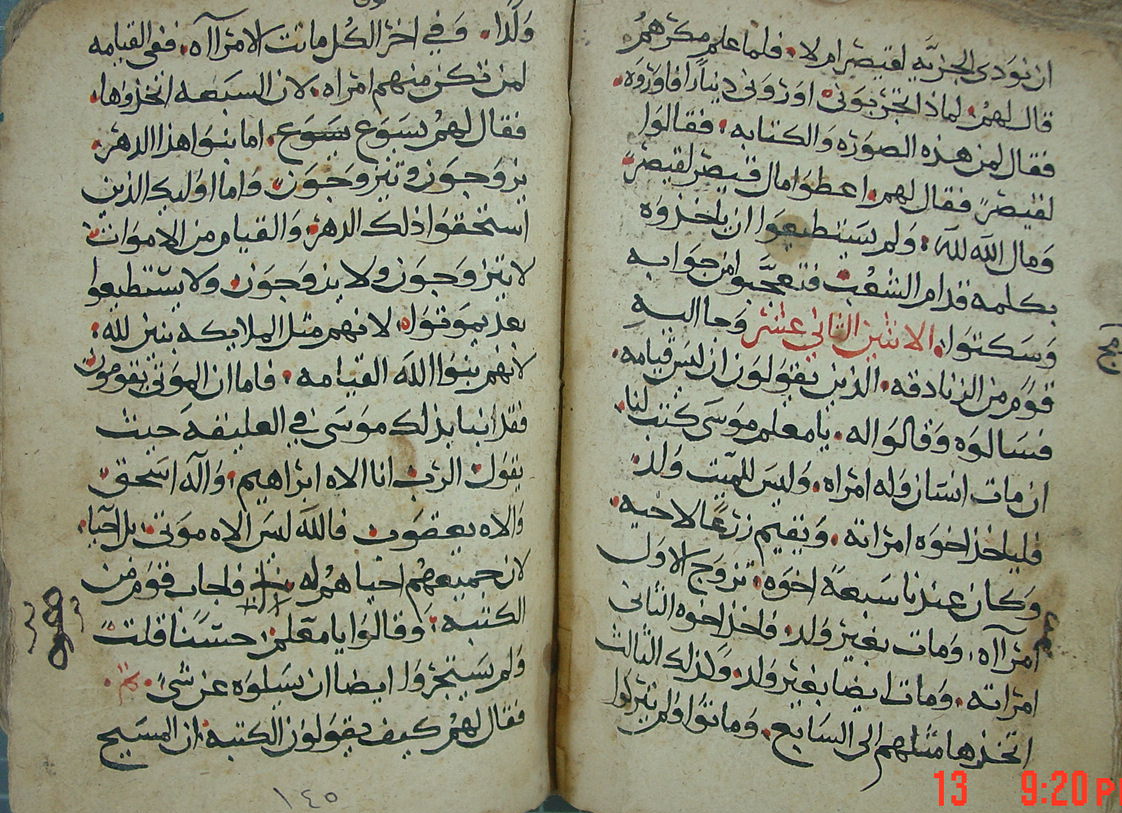 ان نودى الجزيه لقيصر ام لا. فلما علم مكرهم
قال لهم. لماذا تجربونى اورونى دينارا فاوروه.
فقال لمن هذه الصوره والكتابه. فقالوا
لقيصر فقال لهم. اعطوا مال قيصر لقيصر
ومال الله لله. ولم يستطيعوا ان ياخذوه
بكلمه قدام الشعب فتعجبوا من جوابه
وسكتوا. الاثنين الثانى عشر وجا اليه
قوم من الزنادقه. الذين يقولون ان ليس قيامه.
فسالوه وقالوا له. يا معلم موسى كتب لنا.
ان مات انسان وله امراه. وليس للميت ولد.
فلياخذ اخوه امراته. ويقيم زرعا لاخيه.
وكان عندنا سبعة اخوه. تزوج الاول
امرااه. ومات بغير ولد. فاخذ اخوه الثانى
امراته. ومات ايضا بغير ولد. ولذلك الثالث
اتخذها مثلهم الى السابع. وماتوا ولم يتركوا
ولدا. وفى اخر الكل ماتت الامرااه. ففى القيامه
لمن تكن منهم امراه. لان السبعه اتخذوها.
فقال لهم يسوع. اما بنوا هذا الدهر.
يزوجون وتتزوجون. واما اوليك الذين
استحقوا ذلك الدهر. والقيام من الاموات
لا يتزوجون ولا يزوجون. ولا يستطيعوا
بعد يموتوا. لانهم مثل الملايكه بنين لله.
لانهم بنوا الله القيامه. فاما ان الموتى يقومون
فقد انبا بذلك موسى فى العليقه حيث
يقول الرب انا الاه ابراهيم. واله اسحق
والاه يعقوب فالله ليس الاه موتى. بل احيا.
لان جميعهم احيا هم له فاجاب قوم من
الكتبه. وقالوا يا معلم حسنا قلت
ولم يستجروا ايضا ان يسلوه عن شى.
فقال لهم كيف يقولون الكتبه. ان المسيح
١٤٥
13 9:20 P